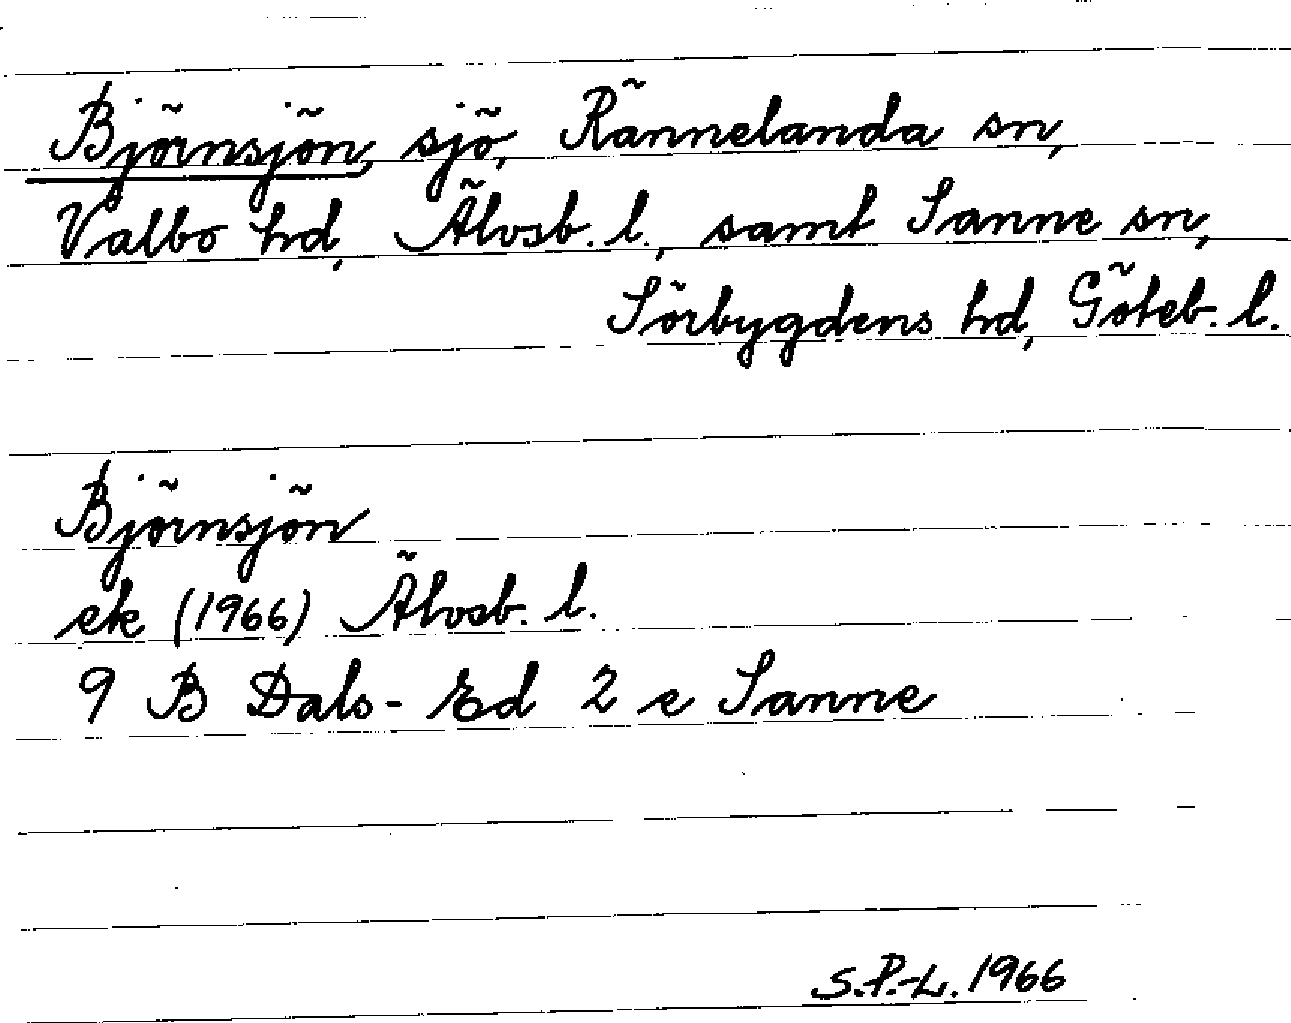 Björnsjön, sjö, Rännelanda sn,
Valbo hd, Älvsb. l., samt Sanne sn,
Sörbygdens hd, Göteb. l.
Björnsjön
ek (1966) Älvsb. l.
9 B Dals-Ed 2 e Sanne
S.P.-L. 1966